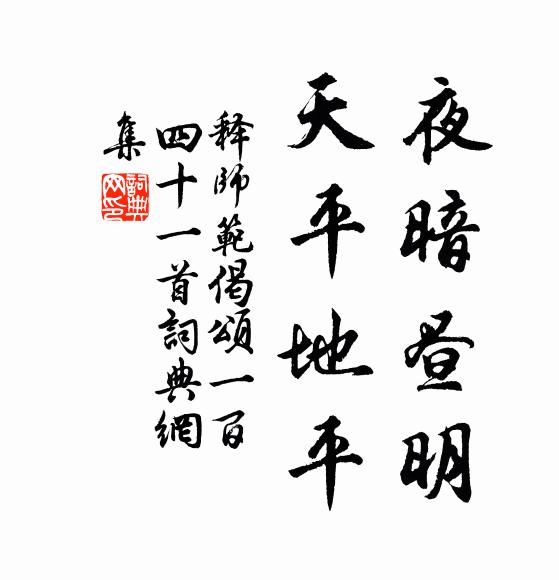 夜暗昼明
天平地平
释師範偈頌一百
四十一首詞典網
集
詞典网印